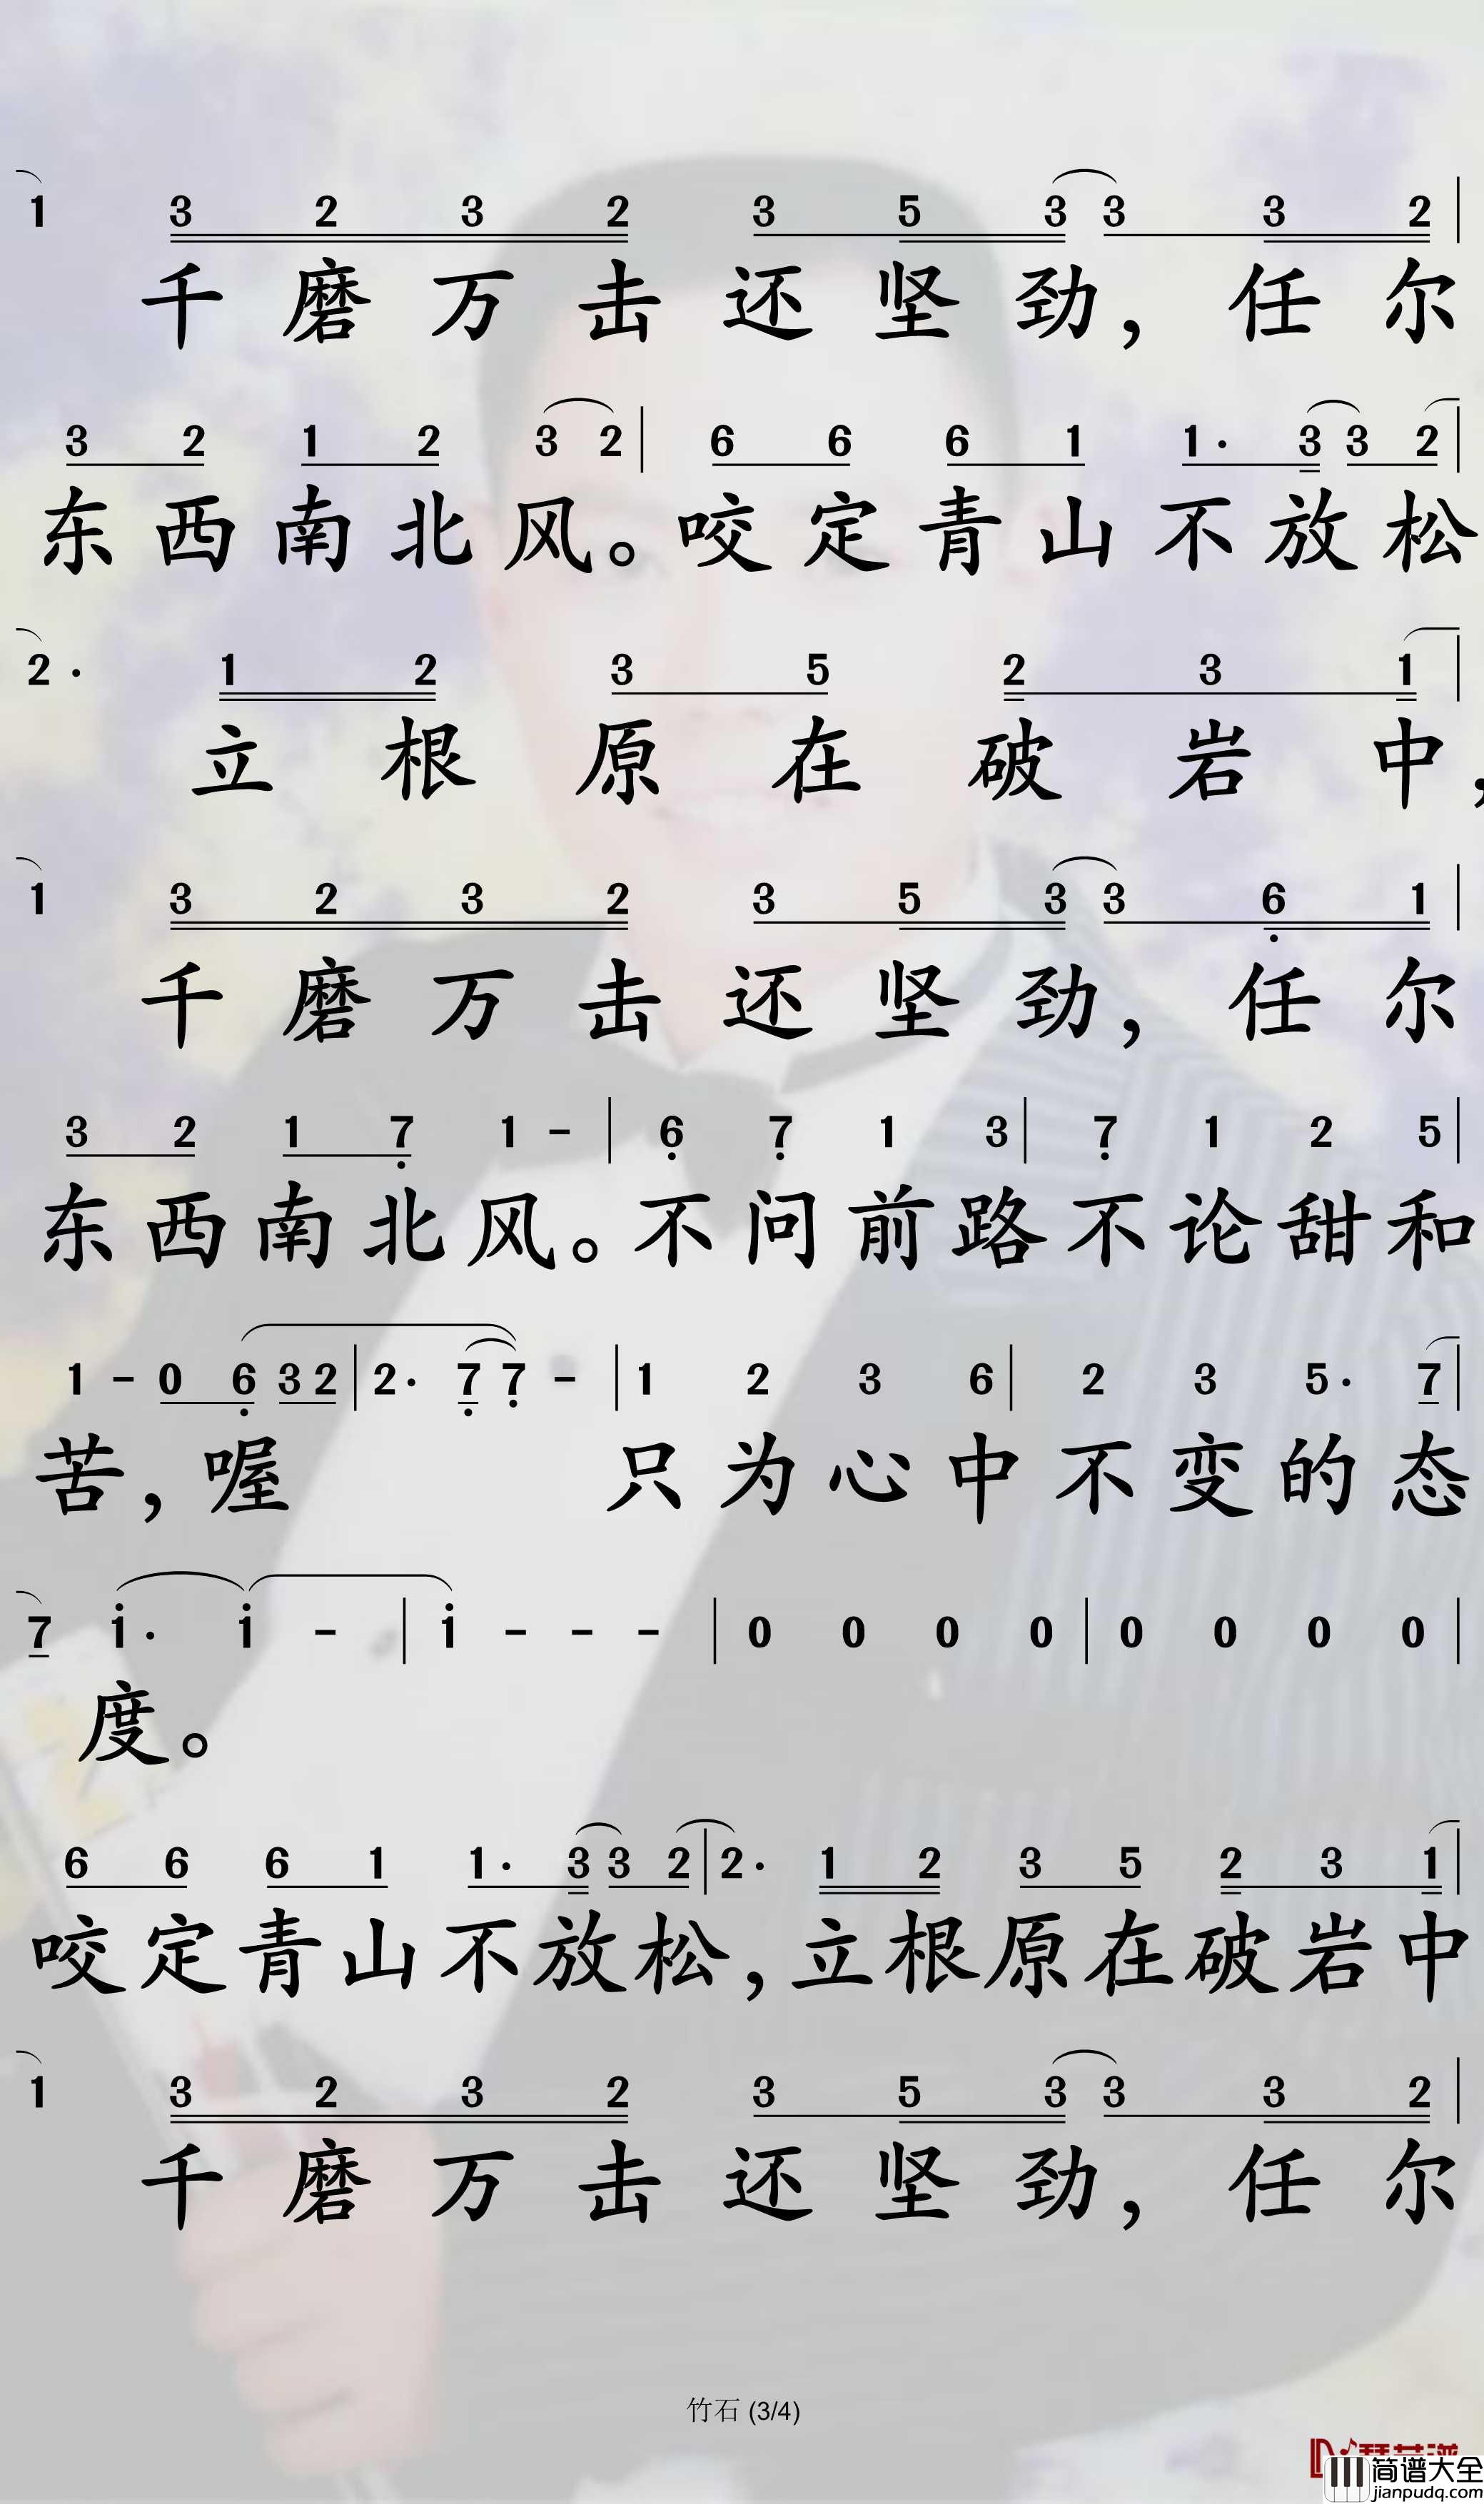 1 3 2 3 2 3 5 3 3 3 2
千磨万击还坚劲，任尔
3 2 1 2 3 2 | 6 6 6 1 1· 3 3 2
东西南北风。咬定青山不放松
2· 1 2 3 5 2 3 1
立根原在破岩中，
1 3 2 3 2 3 5 3 3 6 1
千磨万击还坚劲，任尔
3 2 1 7 1 - | 6 7 1 3 | 7 1 2 5
东西南北风。不问前路不论甜和
1 - 0 6 3 2 | 2· 7 7 - | 1 2 3 6 | 2 3 5· 7
苦，喔 只为心中不变的态
7 1· 1 - | 1 - - - | 0 0 0 0 | 0 0 0 0
度。
6 6 6 1 1· 3 3 2 | 2· 1 2 3 5 2 3 1
咬定青山不放松，立根原在破岩中
1 3 2 3 2 3 5 3 3 3 2
千磨万击还坚劲，任尔
竹石 (3/4)
简谱大全
jianpudq.com